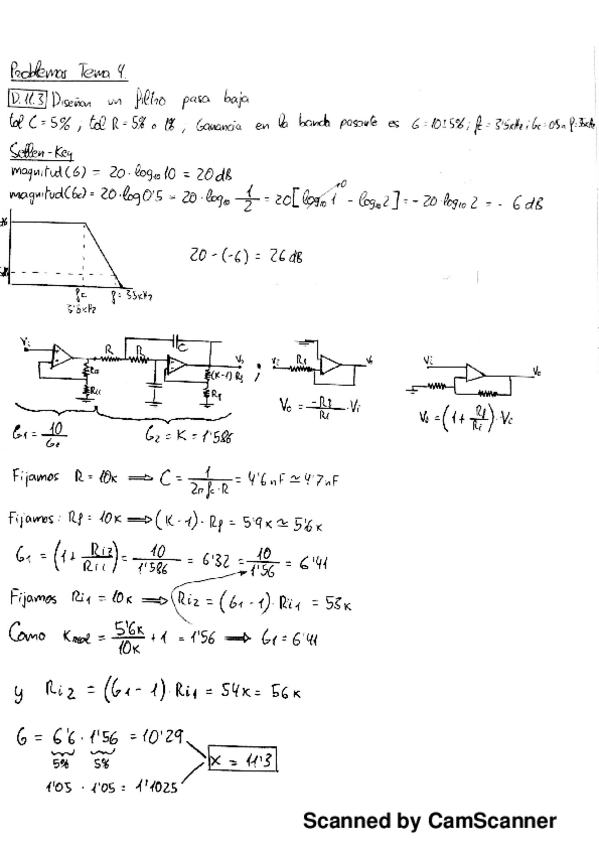 Problemas Tema 4
D.11.3 Diseñan un filtro pasa baja
tol C = 5% , tol R = 5% o 1% , Ganancia en la banda pasante es G = 10±5% ; fc = 3'5kHz ;
Sallen-Key
magnitud(G) = 20·log₁₀10 = 20dB
magnitud(Gc) = 20·log0'5 = 20·log₁₀ 1/2 = 20[log₁₀1 - log₁₀2] = -20log₁₀2 = -6dB
20-(-6) = 26dB
fc =
3'5kHz
Vi R R C Vo (K-1)Rf Rf ; Vi Ri Vo Vi Vo
Vo = -Rf/Ri · Vi
Vo = (1 + Rf/Ri)·Vc
G1 = 10/G2 G2 = K = 1'586
Fijamos R = 10K ⟹ C = 1/2πfc·R = 4'6nF ≃ 4'7nF
Fijamos: Rf = 10K ⟹ (K-1)·Rf = 5'9K ≃ 5'6K
G1 = (1 + Ri2/Ri1) = 10/1'586 = 6'32 = 10/1'56 = 6'41
Fijamos Ri1 = 10K ⟹ Ri2 = (G1-1)·Ri1 = 53K
Como Kreal = 5'6K/10K + 1 = 1'56 ⟶ G1 = 6'41
y Ri2 = (G1-1)·Ri1 = 54K = 56K
G = 6'6 · 1'56 = 10'29
5% 5%
x = 11'3
1'05 · 1'05 = 1'1025
Scanned by CamScanner